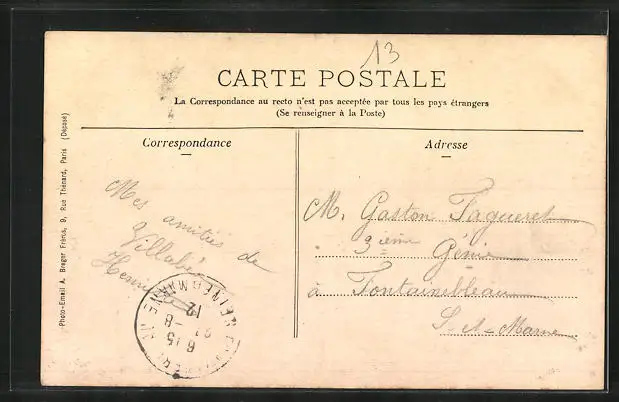 13
CARTE POSTALE
La Correspondance au recto n'est pas acceptée par tous les pays étrangers
(Se renseigner à la Poste)
Correspondance
Mes amitiés de
Villabé
Henri
Adresse
M. Gaston Tagueret
3ième Génie
à Fontainebleau
S-et-Marne
Photo-Email A. Breger Frères, 9, Rue Thénard, Paris (Déposé)
6 15
8
12